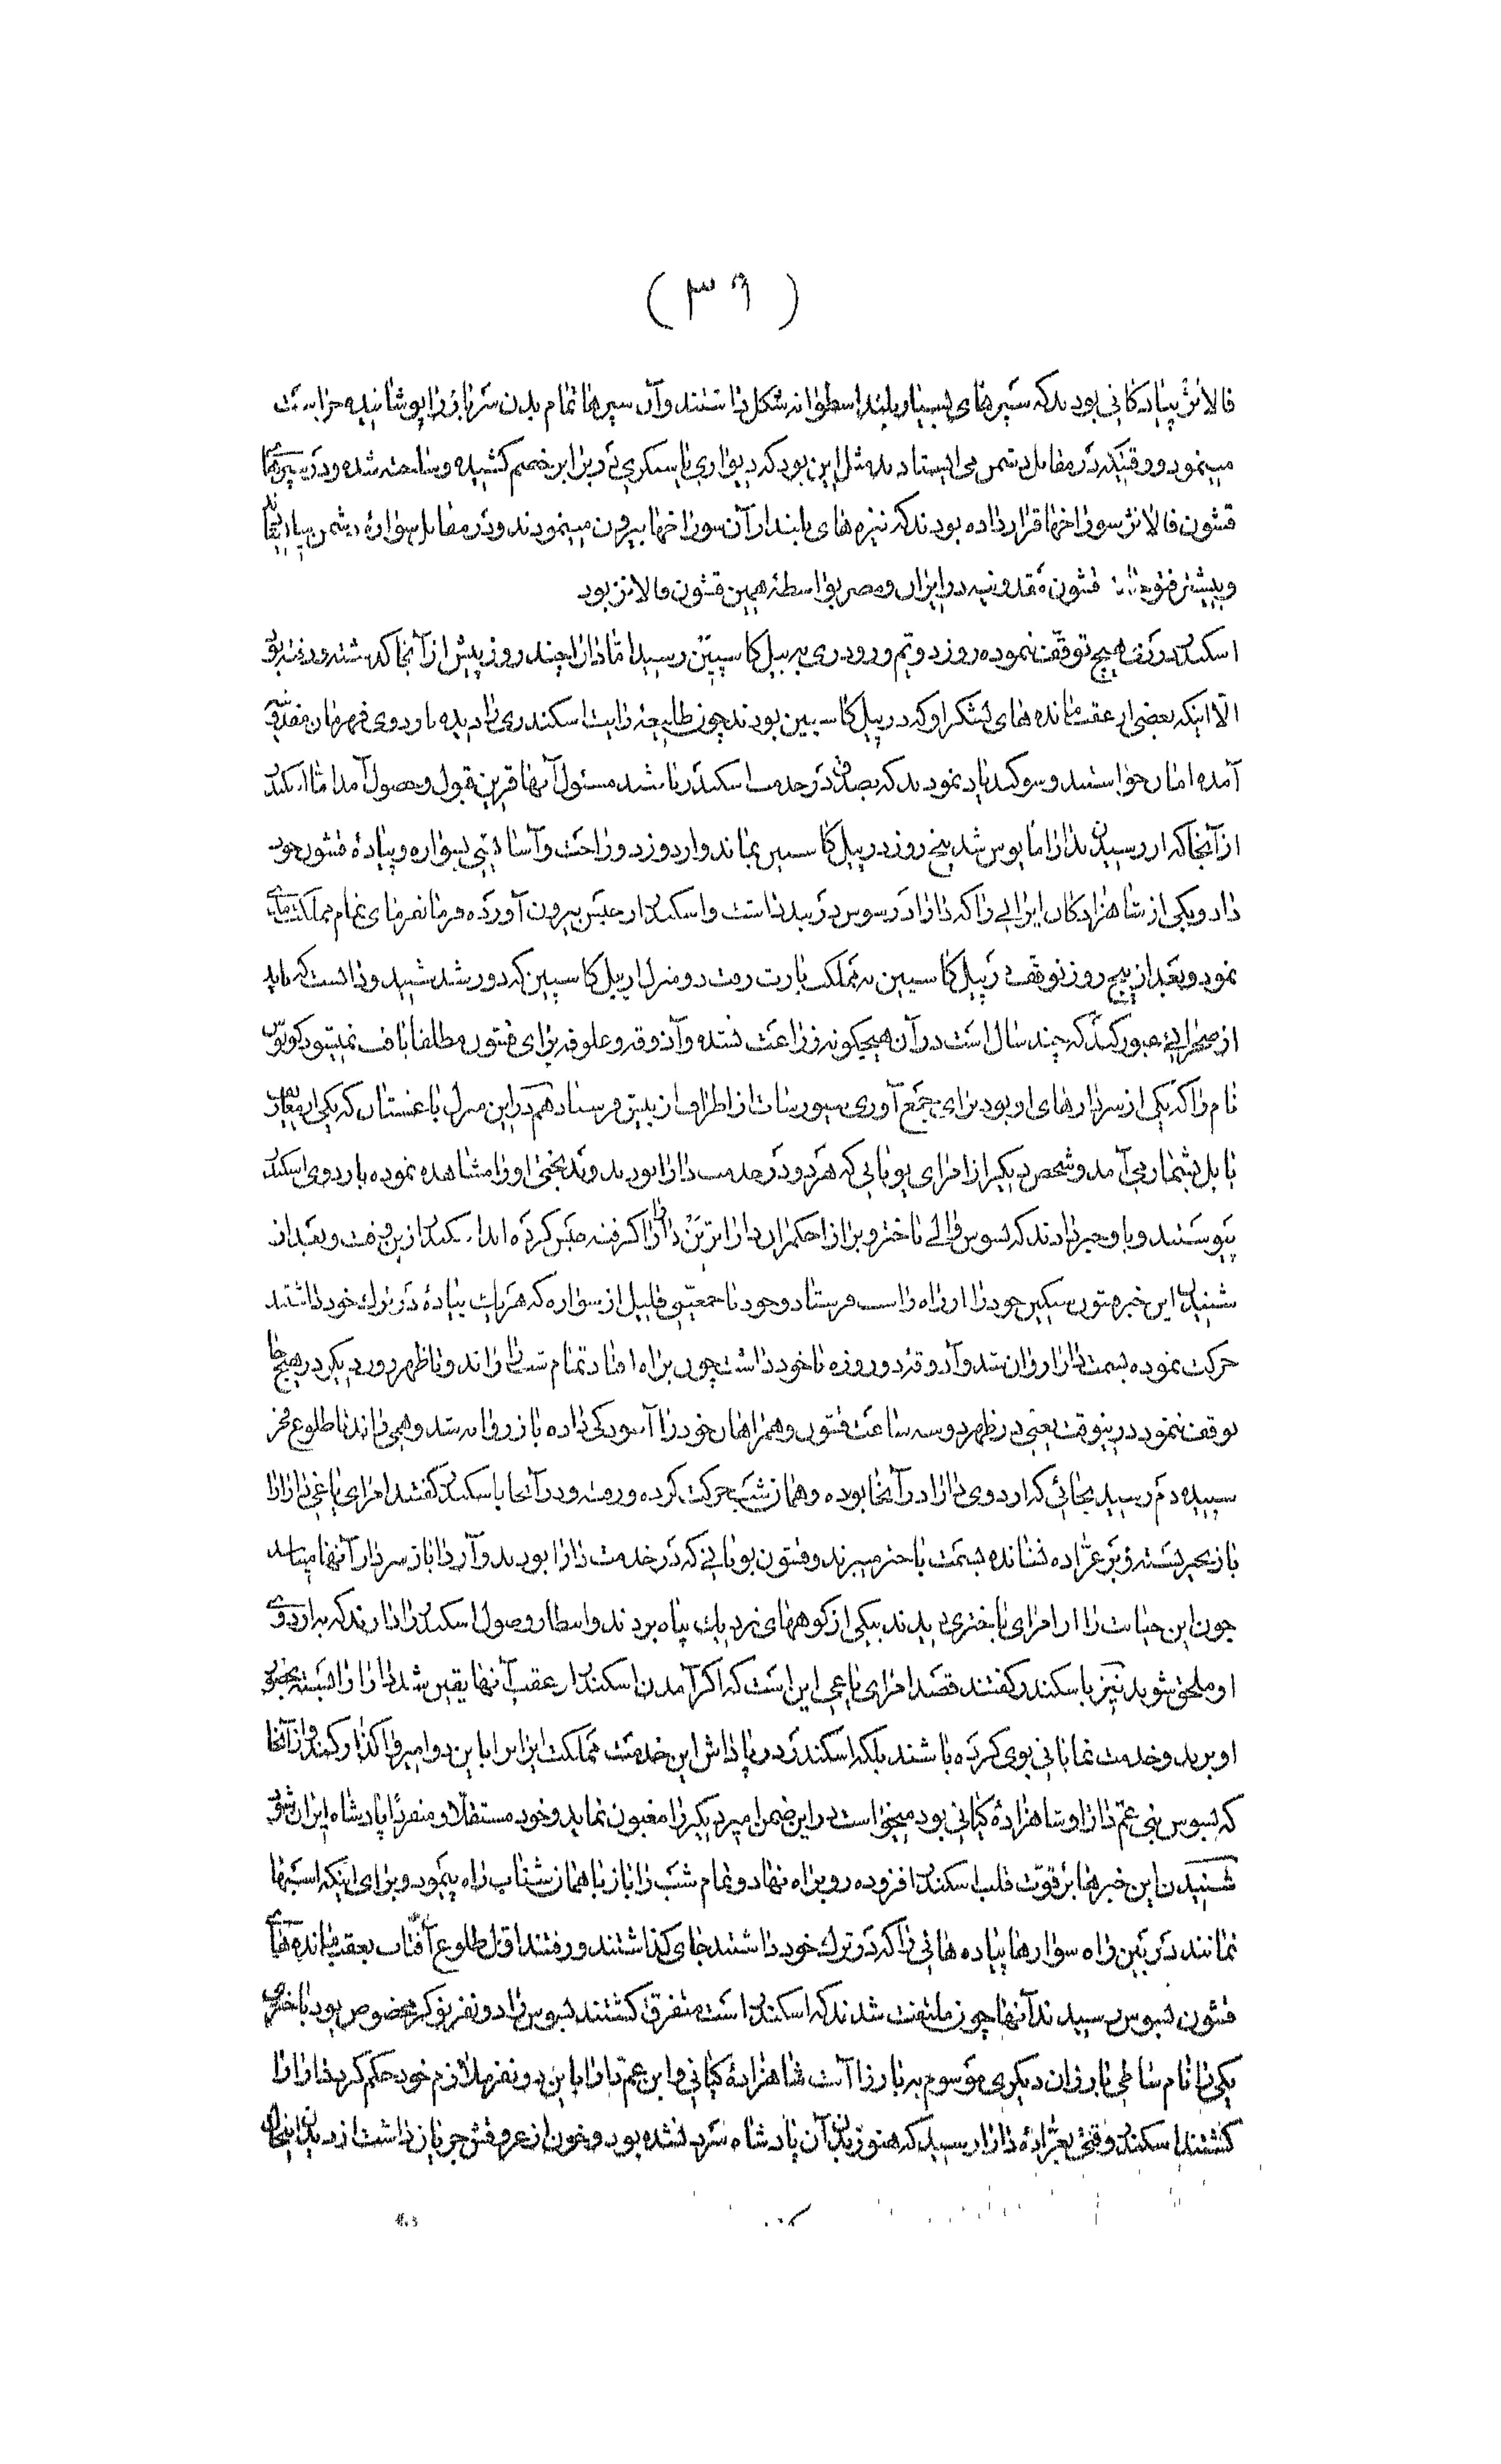 ( ۳۶ )
فالانژ پیادکانی بودند که سپرهای بسیار بلند اسطوانه شکل داشتند و آن سپرها تمام بدن سرباز را پوشانیده حراست
مینمود و وقتیکه در مقابل دشمن می‌ایستادند مثل این بود که دیواری یا سنکری در برابر خصم کشیده و ساخته شده و در سپرهای
قشون فالانژ سوراخها قرار داده بودند که نیزه‌های بلند از آن سوراخها بیرون مینمودند و در مقابل سواره دشمن
و بیشتر فتوحات قشون مقدونیه در ایران و مصر بواسطهٔ همین قشون فالانژ بود
اسکندر در ری هیچ توقف ننموده روز دویم ورود ری به پیل کاسپین رسید اما دارا چند روز پیش از آنجا کذشته و رفته بود
الا اینکه بعضی از عقب مانده‌های لشکر او که در پیل کاسپین بودند چون طلیعهٔ رایت اسکندری را دیده باردوی قهرمان مقدونیه
آمده امان خواستند و سوکند یاد نمودند که بصدق در خدمت اسکندر باشند مسئول آنها قرین قبول و حصول آمد اما اسکندر
از آنجا که از رسیدن بدارا مأیوس شد پنج روز در پیل کاسپین بماند و اردو زد و راحت و آسایشی بسواره و پیادهٔ قشون خود
داد و یکی از شاهزادکان ایرانی را که دارا در سوس در بند داشت و اسکندر از حبس بیرون آورده فرمانفرمای تمام مملکت
نمود و بعد از پنج روز توقف در پیل کاسپین به مملکت پارت رفت دو منزل از پیل کاسپین که دور شد شنید و دانست که باید
از صحرائی عبور کند که چند سال است در آن هیچکونه زراعت نشده و آذوقه و علوفه برای قشون مطلقا یافت نمیشود
نام را که یکی از سردارهای او بود برای جمع آوری سیورسات از اطراف از پیش فرستاد هم در این منزل باغستان که یکی از
بابل بشمار می‌آمد و شخص دیکر از امرای یونانی که هر دو در خدمت دارا بودند و بدبختی او را مشاهده نموده باردوی اسکندر
پیوستند و باو خبر دادند که بسوس والی باختر و برازا حکمران دارا را کرفته حبس کرده‌اند اسکندر ازین وقت و بعد از
شنیدن این خبر قشون سنکین خود را از راه راست فرستاد و خود با جمعیتی قلیل از سواره که هر یک پیادهٔ در ترک خود داشتند
حرکت نموده بسمت دارا روان شد و آذوقه دو روزه با خود داشت چون براه افتاد تمام شب را راند و تا ظهر روز دیکر در هیچ جا
توقف ننمود در اینوقت یعنی در ظهر دو سه ساعت قشون و همراهان خود را آسودکی داده باز روانه شد و همی راند تا طلوع فجر
سپیده دم رسید بجائی که اردوی دارا در آنجا بوده و همان شب حرکت کرده و رفته و در آنجا باسکندر کفتند امرای یاغی دارا را
با زنجیر بسته و بر عراده نشانده بسمت باختر میبرند و قشون یونانی که در خدمت دارا بودند و سردار آنها میباشد
چون این خیانت را از امرای باختری دیدند بیکی از کوههای نزدیک پناه بردند و انتظار وصول اسکندر را دارند که به اردوی
او ملحق شوند نیز باسکندر کفتند قصد امرای یاغی این است که اکر آمدن اسکندر از عقب آنها یقین شد دارا را بسته بحضور
او برند و خدمت نمایانی بوی کرده باشند بلکه اسکندر در پاداش این خدمت مملکت ایران را باین دو امیر واکذار کند و از آنجا
که بسوس بنی عم دارا و شاهزادهٔ کیانی بود میخواست در این ضمن امیر دیکر را مغبون نماید و خود مستقلا و منفردا پادشاه ایران شود
شنیدن این خبرها بر قوت قلب اسکندر افزوده رو براه نهاد و تمام شب را باز با همان شتاب راه پیمود و برای اینکه اسبها
نمانند در بین راه سوارها پیاده‌هائی را که در ترک خود داشتند جای کذاشتند و رفتند اول طلوع آفتاب بعقب مانده‌های
قشون بسوس رسیدند آنها چون ملتفت شدند که اسکندر است متفرق کشتند بسوس را دو نفر نوکر مخصوص بود باختری
یکی را نام ساطی بارزان دیکری موسوم به بارزاآنت شاهزادهٔ کیانی و ابن عم دارا باین دو نفر ملازم خود حکم کرد دارا را
کشتند اسکندر وقتی بعرادهٔ دارا رسید که هنوز بدن آن پادشاه سرد نشده بود و خون از عروقش جریان داشت از دیدن اینحال